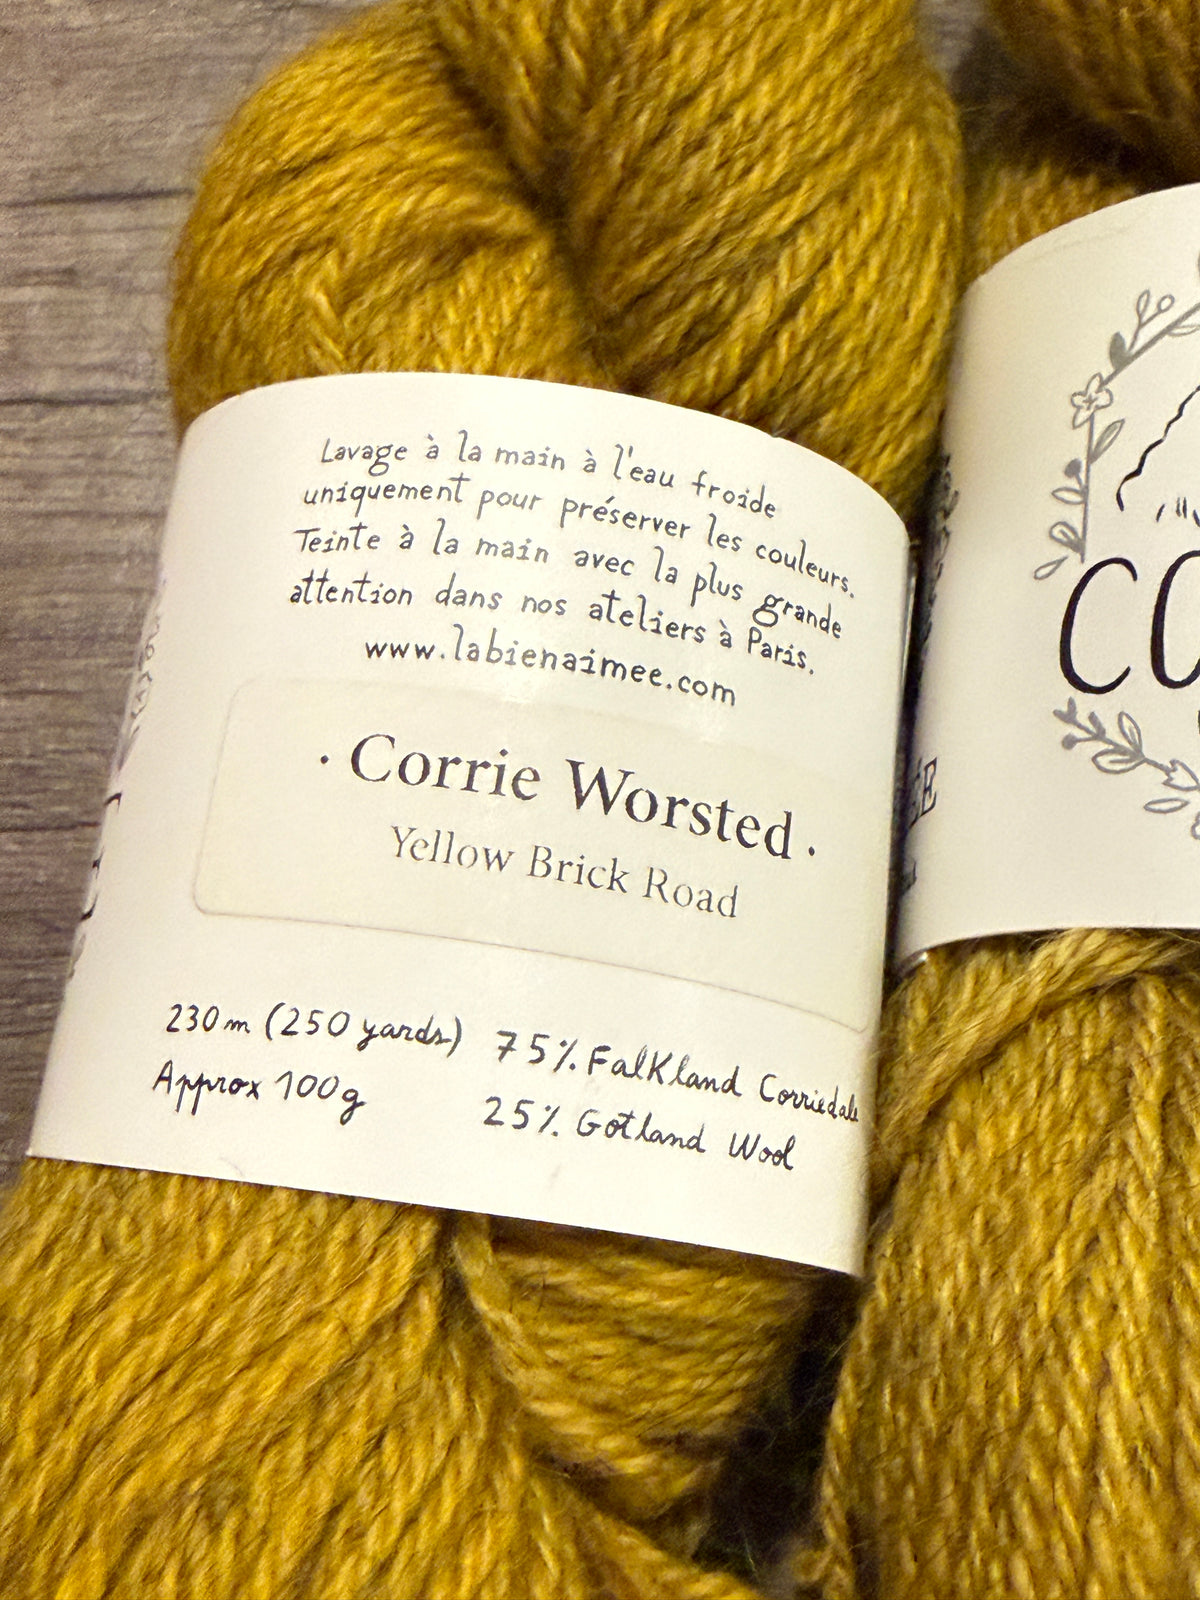 Lavage à la main à l'eau froide
uniquement pour préserver les couleurs.
Teinte à la main avec la plus grande
attention dans nos ateliers à Paris.
www.labienaimee.com
· Corrie Worsted ·
Yellow Brick Road
230m (250 yards)
Approx 100g
75% Falkland Corriedale
25% Gotland Wool
CO